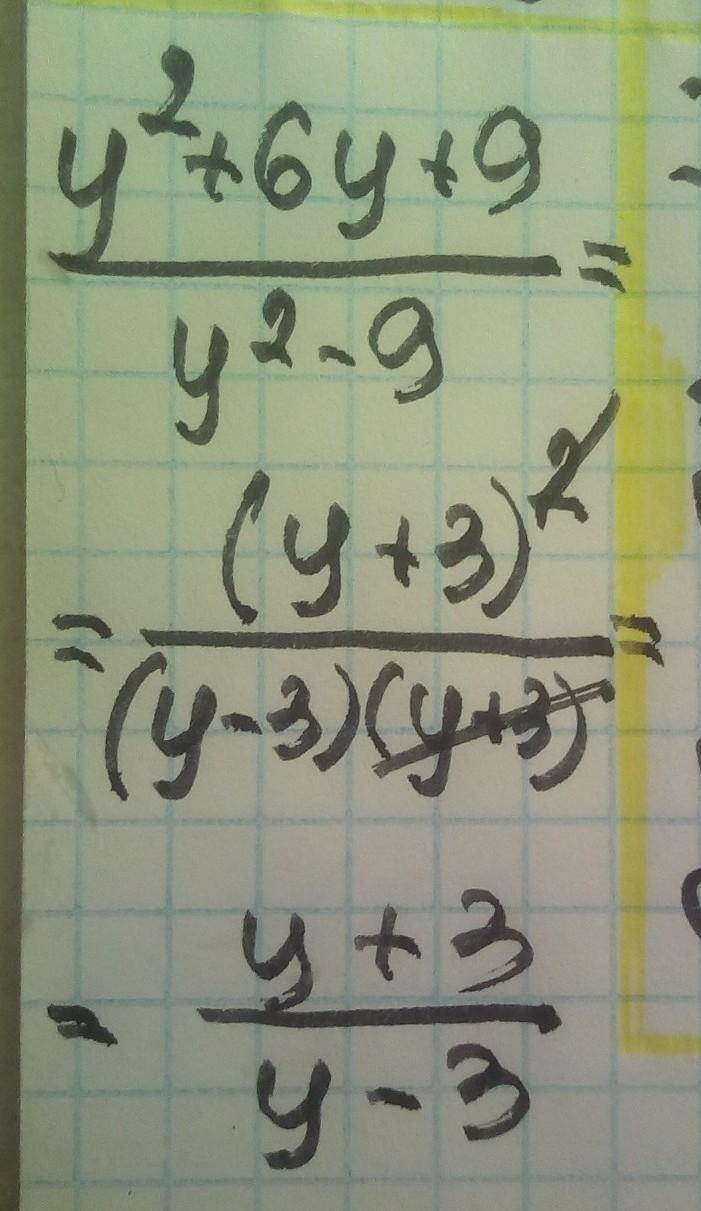 y²+6y+9
y²-9 =
= (y+3)² =
(y-3)(y+3)
= y+3
y-3